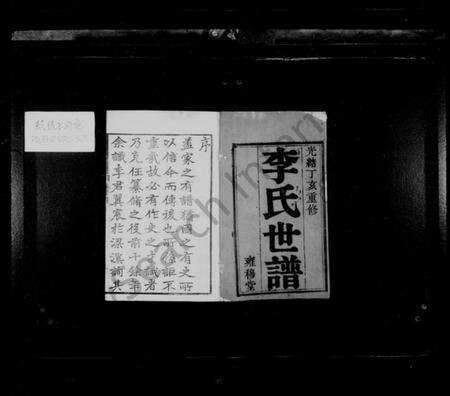 光緒丁亥重修
李氏世譜
雍穆堂
序
蓋家之有譜猶國之有史所
以信今而傳後也所信詎不
重哉故必有作史之才識者
乃克任纂脩之役前十餘年
余識李君翼宸於